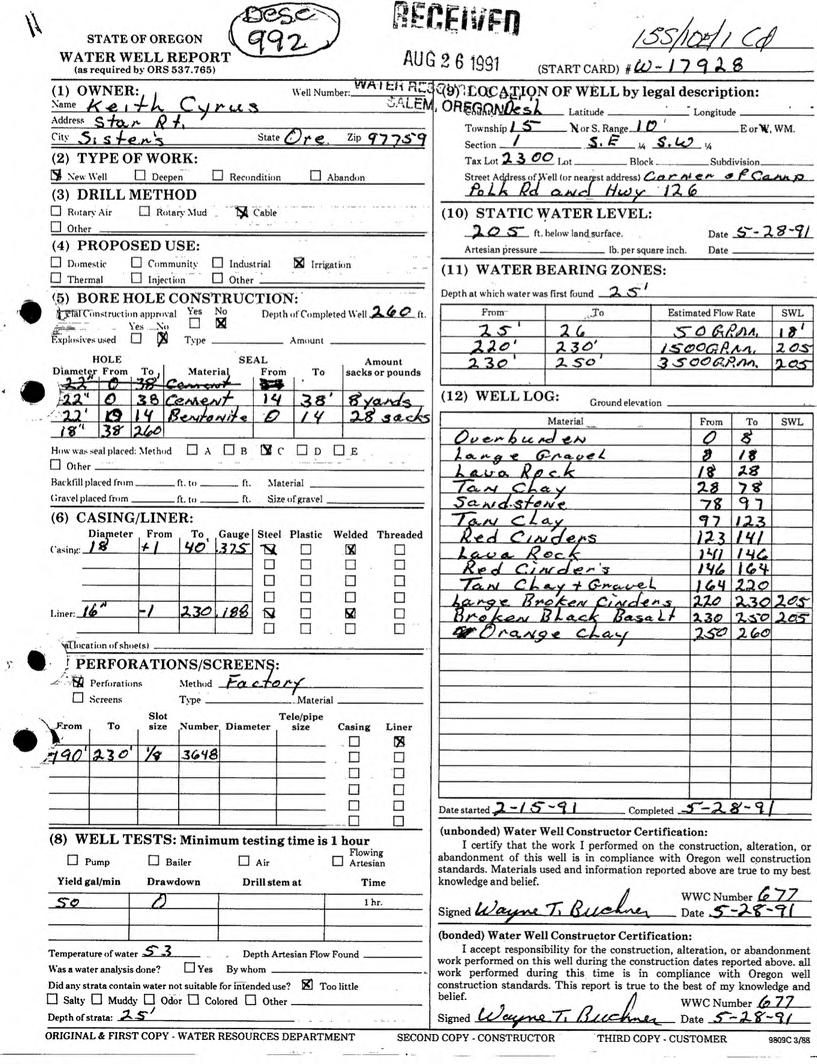 Desc
992
RECEIVED
AUG 26 1991
WATER RES
SALEM, OREGON
15S/10E/1 Cd
STATE OF OREGON
WATER WELL REPORT
(as required by ORS 537.765)
(START CARD) # W-17928
(1) OWNER: Well Number:
Name Keith Cyrus
Address Star Rt.
City Sisters State Ore. Zip 97759
(2) TYPE OF WORK:
New Well Deepen Recondition Abandon
(3) DRILL METHOD
Rotary Air Rotary Mud Cable
Other
(4) PROPOSED USE:
Domestic Community Industrial Irrigation
Thermal Injection Other
(5) BORE HOLE CONSTRUCTION:
Special Construction approval Yes No Depth of Completed Well 260 ft.
Yes No
Explosives used Type Amount
HOLE SEAL Amount
Diameter From To Material From To sacks or pounds
22" 0 38' Cement
22" 0 38 Cement 14 38' 8 yards
22' 0 14 Bentonite 0 14 28 sacks
18" 38 260
How was seal placed: Method A B C D E
Other
Backfill placed from ft. to ft. Material
Gravel placed from ft. to ft. Size of gravel
(6) CASING/LINER:
Diameter From To Gauge Steel Plastic Welded Threaded
Casing: 18 +1 40' .375
Liner: 16" -1 230 .188
Final location of shoe(s)
PERFORATIONS/SCREENS:
Perforations Method Factory
Screens Type Material
From To Slot size Number Diameter Tele/pipe size Casing Liner
190' 230' 1/8 3648
(8) WELL TESTS: Minimum testing time is 1 hour
Pump Bailer Air Flowing Artesian
Yield gal/min Drawdown Drill stem at Time
50 0 1 hr.
Temperature of water 53 Depth Artesian Flow Found
Was a water analysis done? Yes By whom
Did any strata contain water not suitable for intended use? Too little
Salty Muddy Odor Colored Other
Depth of strata: 25'
(9) LOCATION OF WELL by legal description:
County Desh Latitude Longitude
Township 15 N or S. Range 10 E or W, WM.
Section 1 S.E 1/4 S.W 1/4
Tax Lot 2300 Lot Block Subdivision
Street Address of Well (or nearest address) Corner of Camp
Polk Rd and Hwy 126
(10) STATIC WATER LEVEL:
205 ft. below land surface. Date 5-28-91
Artesian pressure lb. per square inch. Date
(11) WATER BEARING ZONES:
Depth at which water was first found 25'
From To Estimated Flow Rate SWL
25' 26 50 G.P.M. 18'
220' 230' 1500 G.P.M. 205
230' 250' 3500 G.P.M. 205
(12) WELL LOG: Ground elevation
Material From To SWL
Overburden 0 8
Large Gravel 8 18
Lava Rock 18 28
Tan Clay 28 78
Sandstone 78 97
Tan Clay 97 123
Red Cinders 123 141
Lava Rock 141 146
Red Cinder's 146 164
Tan Clay + Gravel 164 220
Large Broken Cinders 220 230 205
Broken Black Basalt 230 250 205
Orange Clay 250 260
Date started 2-15-91 Completed 5-28-91
(unbonded) Water Well Constructor Certification:
I certify that the work I performed on the construction, alteration, or
abandonment of this well is in compliance with Oregon well construction
standards. Materials used and information reported above are true to my best
knowledge and belief.
WWC Number 677
Signed Wayne T. Buchner Date 5-28-91
(bonded) Water Well Constructor Certification:
I accept responsibility for the construction, alteration, or abandonment
work performed on this well during the construction dates reported above. all
work performed during this time is in compliance with Oregon well
construction standards. This report is true to the best of my knowledge and
belief.
WWC Number 677
Signed Wayne T. Buchner Date 5-28-91
ORIGINAL & FIRST COPY - WATER RESOURCES DEPARTMENT SECOND COPY - CONSTRUCTOR THIRD COPY - CUSTOMER 9809C 3/88